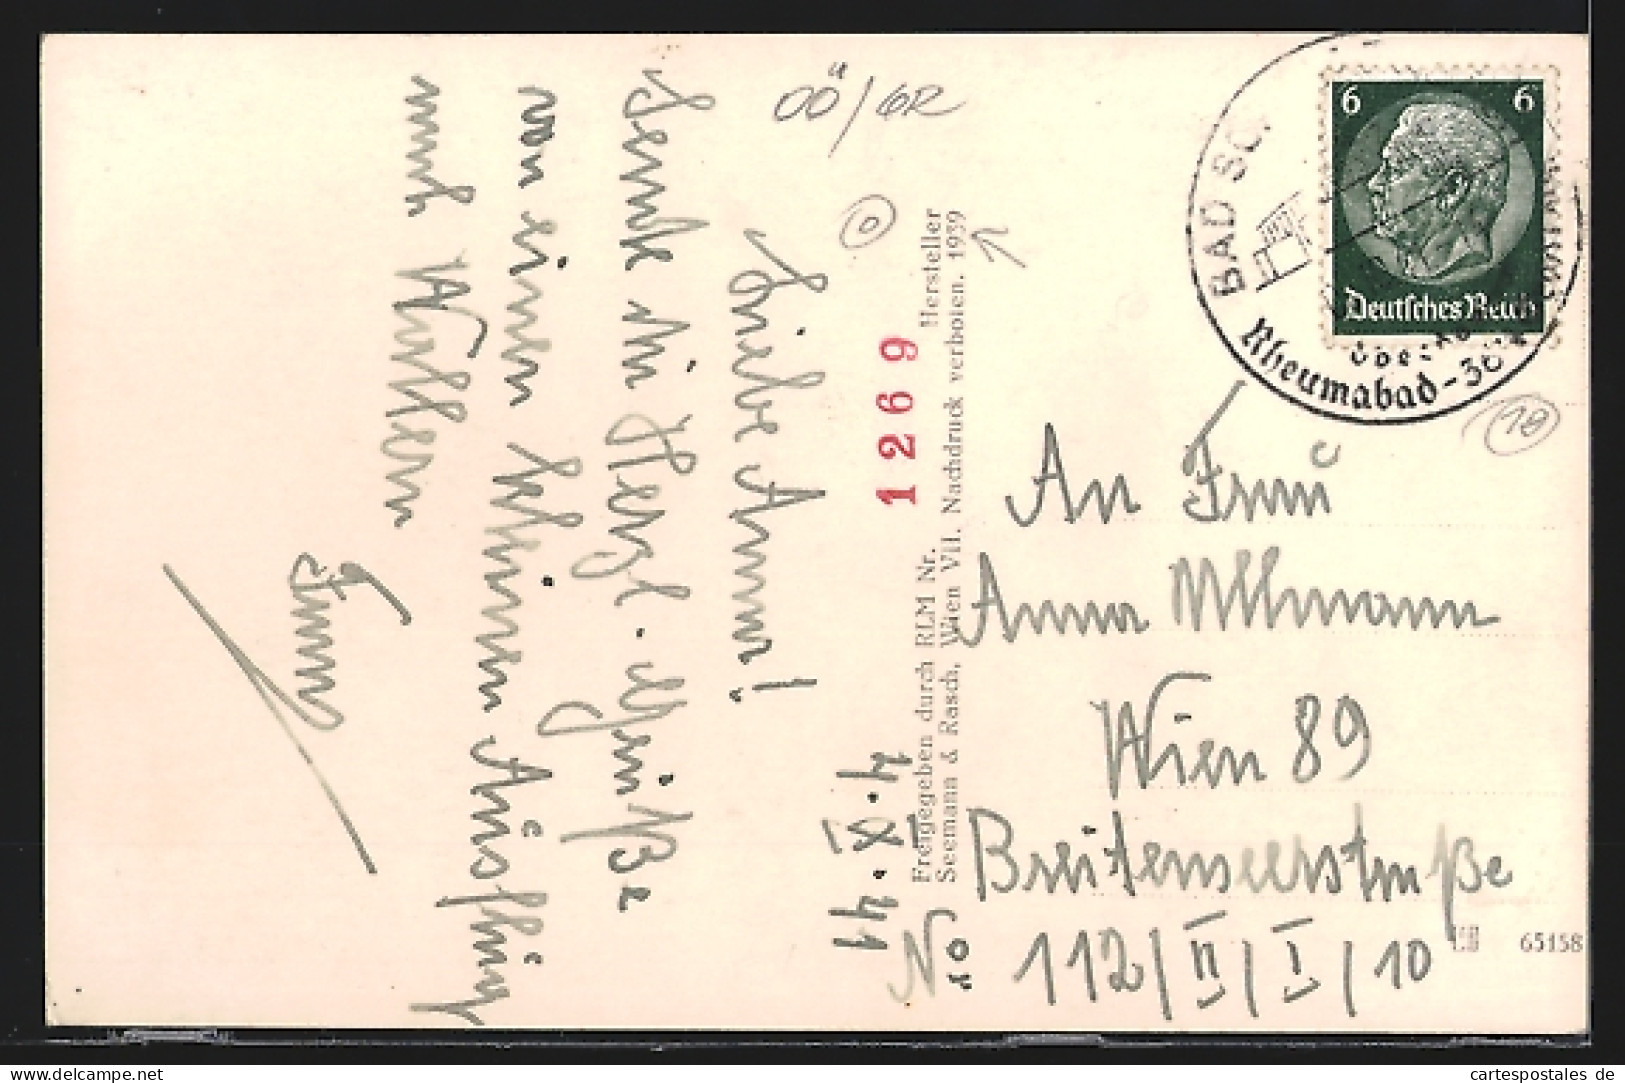 OÖ/GR
Liebe Anna!
Sende dir Herzl. Grüße
von einem schönen Ausflug
nach
4.XI.41
Freigegeben durch RLM Nr. 1269
Seemann & Rasch, Wien VII. Nachdruck verboten. 1939
Hersteller
6 6
Deutsches Reich
BAD SC
Rheumabad
10
An Frau
Anna Ullmann
Wien 89
Breitenseerstraße
No 112/II/I/10
65158
cartespostales de
www.delcampe.net